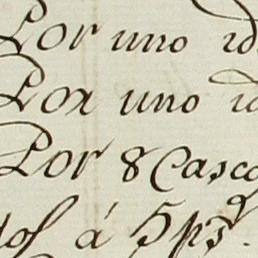 Por uno id
Por uno id
Por 8 Casco
á 5 ps.